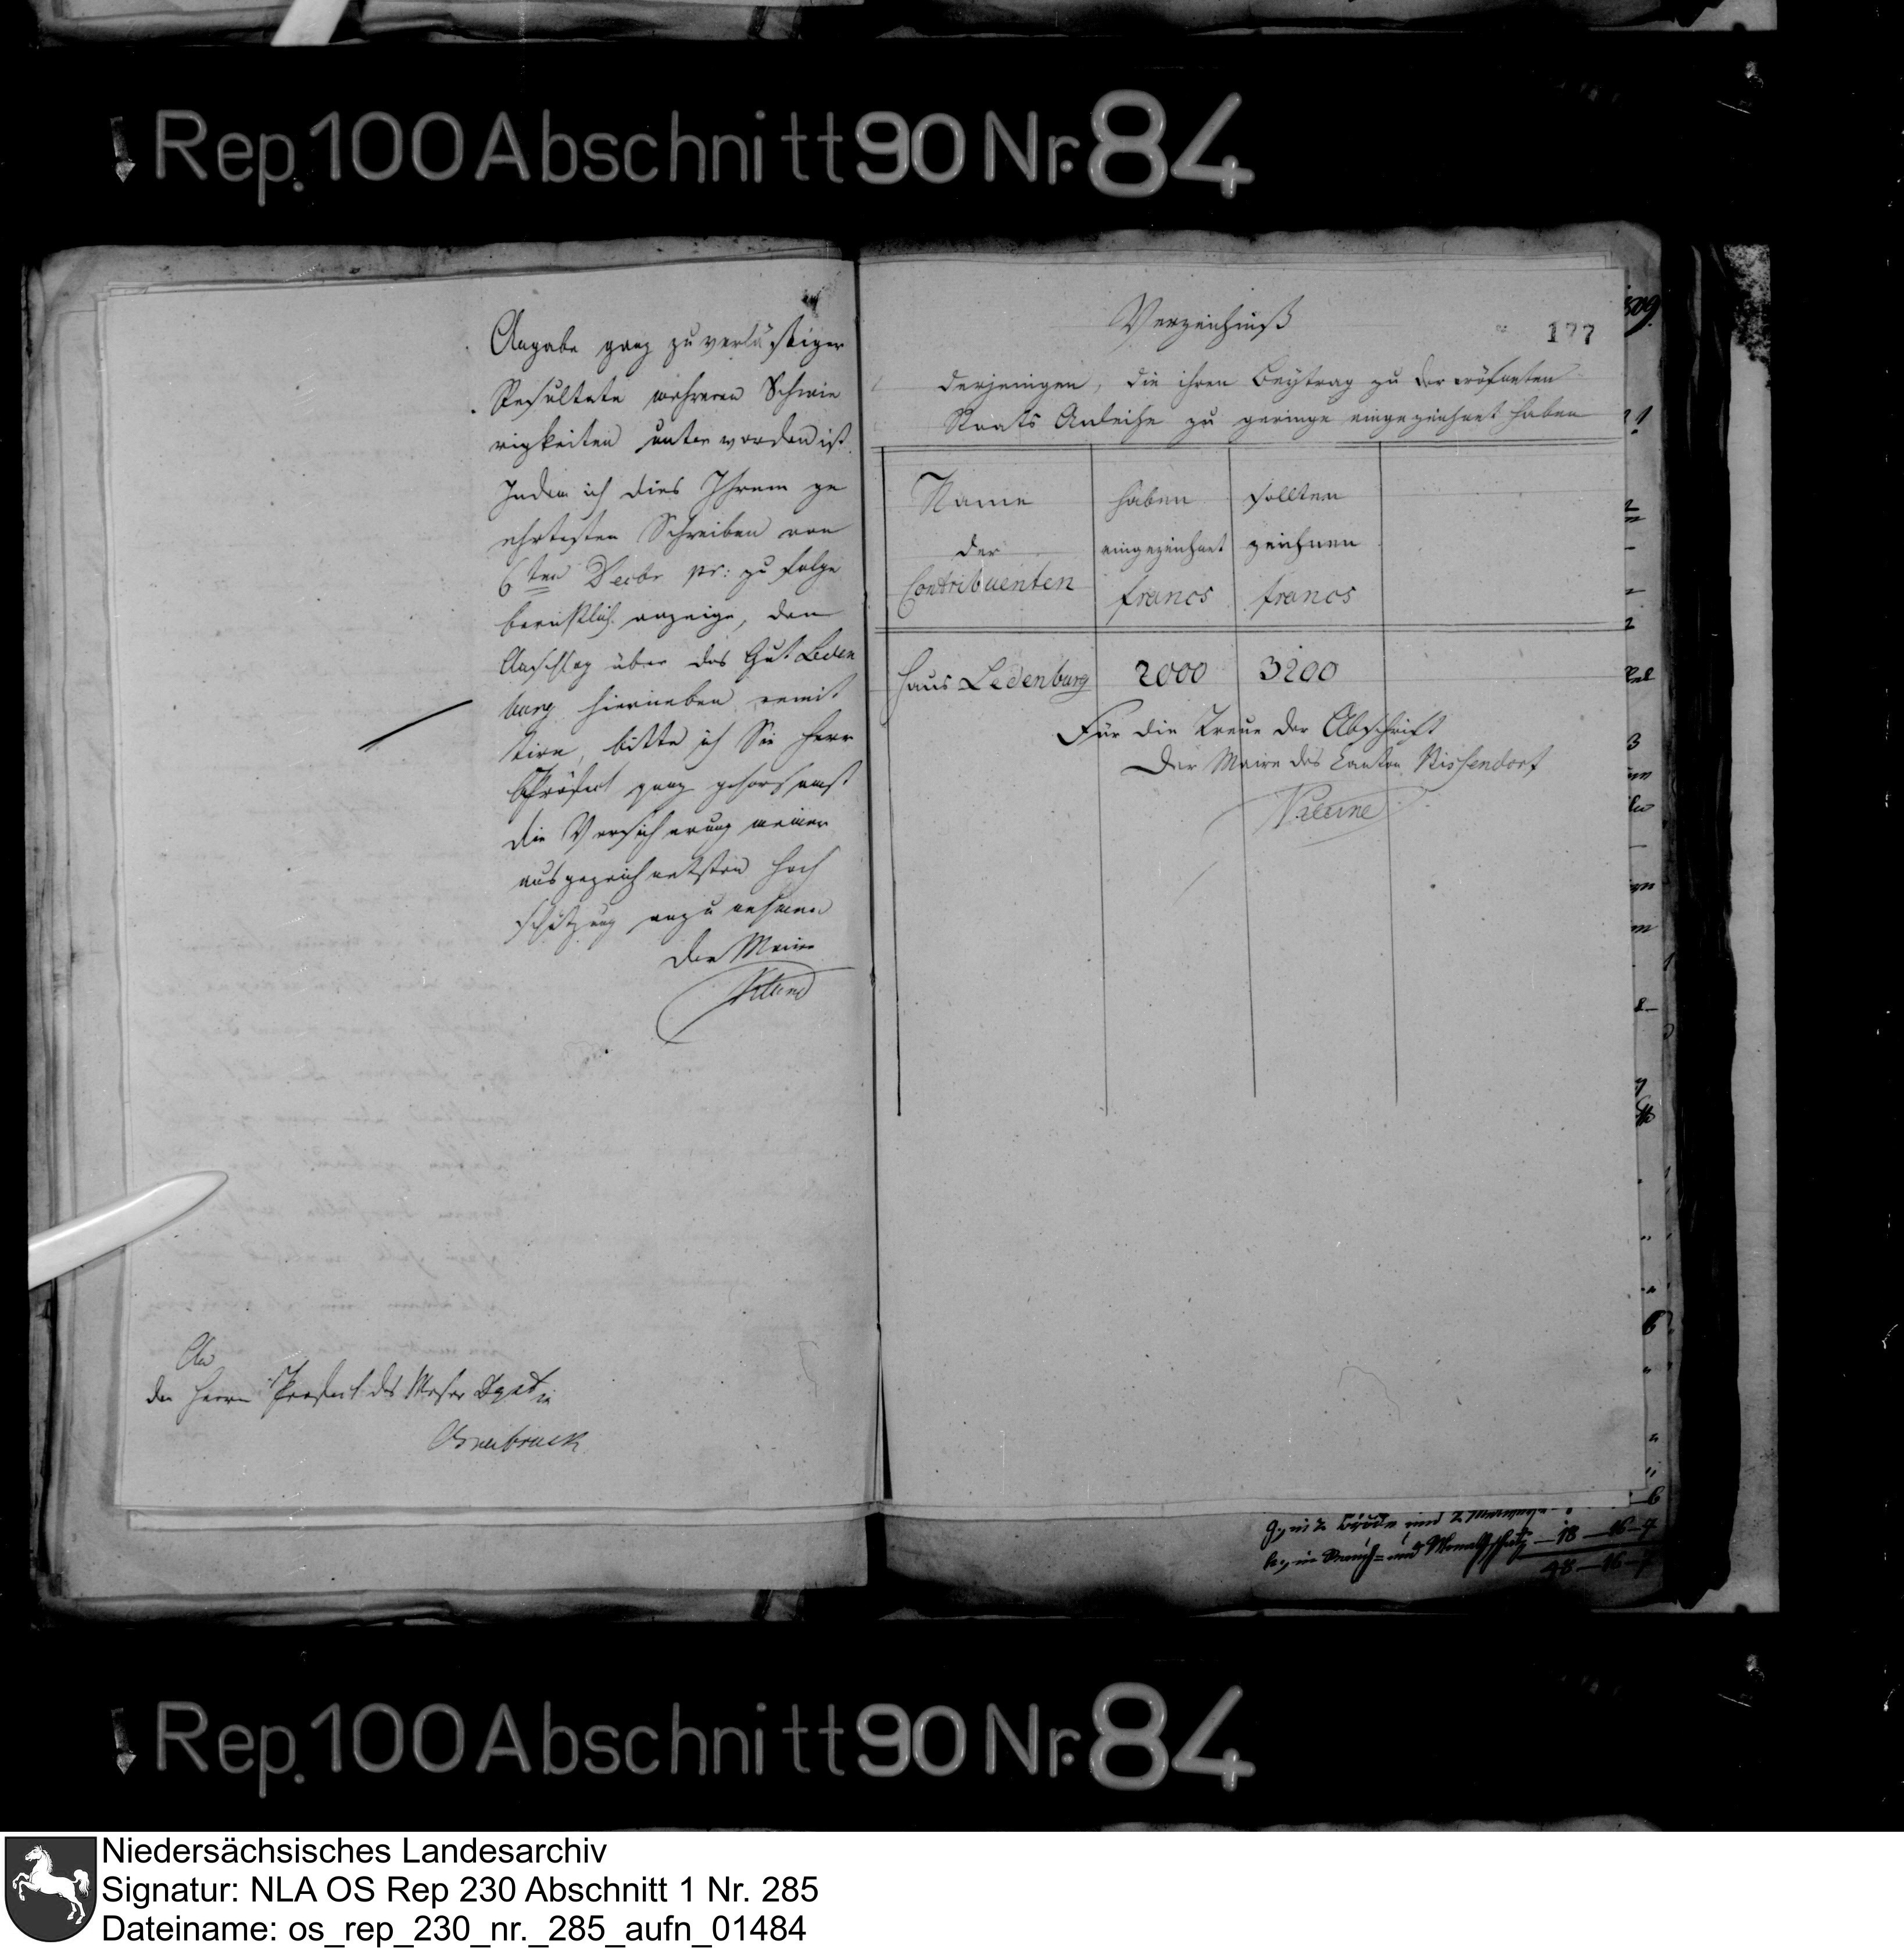 Rep. 100 Abschnitt 90 Nr. 84
Angabe ganz zuverläßiger
Resultate mehreren Schwie
rigkeiten unterworden ist.
Indem ich dies Ihrem ge
ehrtesten Schreiben von
6ten Decbr pr: zu folge
berichtlich anzeige, den
Anschlag über das Gut Leden
burg hierneben remit
tire, bitte ich Sie Herr
Präfect ganz gehorsamst
die Versicherung meiner
ausgezeichnetsten Hoch
schätzung anzunehmen
Der Maire
An
den Herrn Praefect des Weser Dpat in
Osnabruck
177
Verzeichniß
derjenigen, die ihren Beytrag zu der eröfneten
Staats Anleihe zu geringe eingezeichnet haben
Name der Contribuenten
haben eingezeichnet francs
sollten zeichnen francs
Haus Ledenburg 2000 3200
Für die Treue der Abschrift
Der Maire des Canton Bissendorf
18 — 16 — 7
48 — 16 — 7
Rep. 100 Abschnitt 90 Nr. 84
Niedersächsisches Landesarchiv
Signatur: NLA OS Rep 230 Abschnitt 1 Nr. 285
Dateiname: os_rep_230_nr._285_aufn_01484